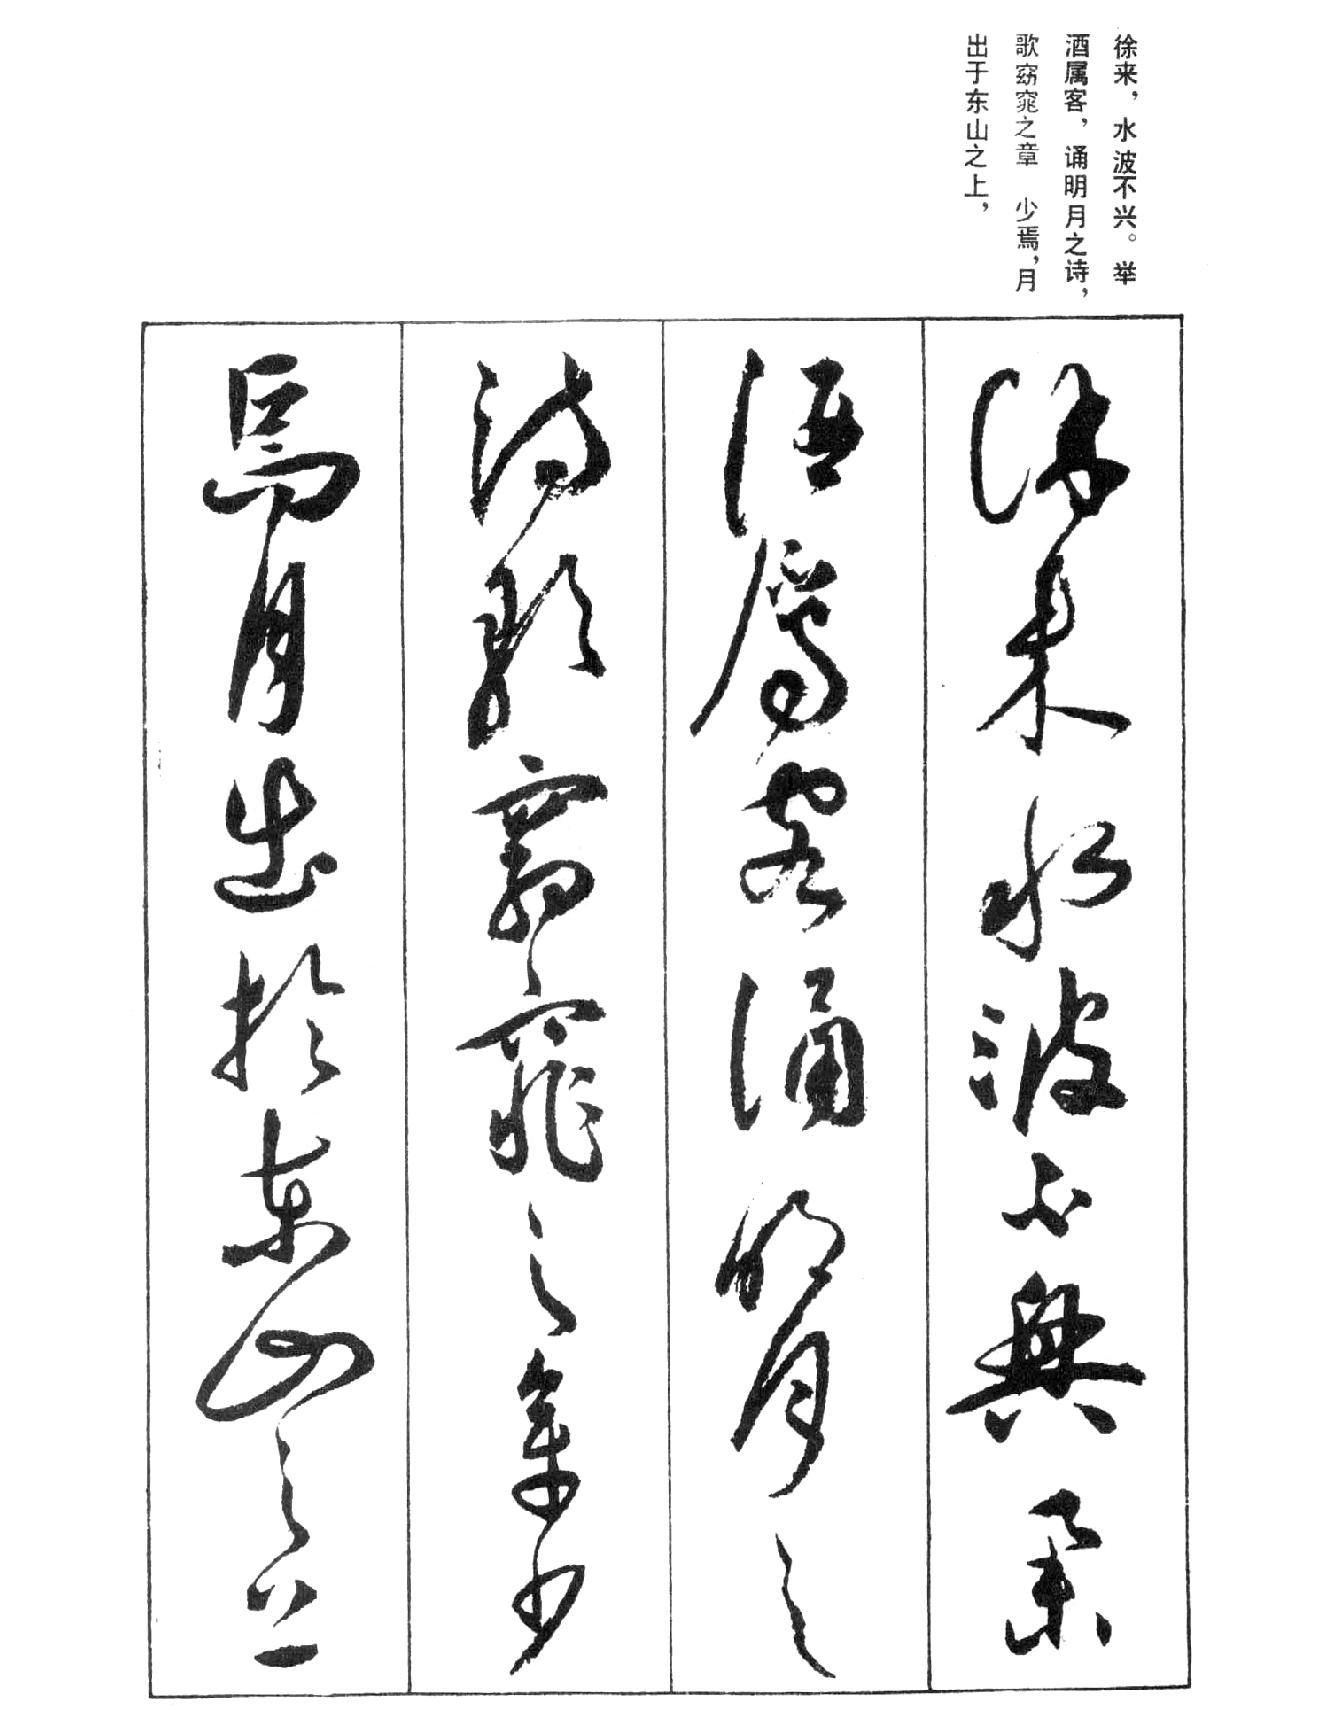 徐来，水波不兴。举
酒属客，诵明月之诗，
歌窈窕之章 少焉，月
出于东山之上，
徐来水波不興舉
酒屬客誦明月之
詩歌窈窕之章少
焉月出於東山之上